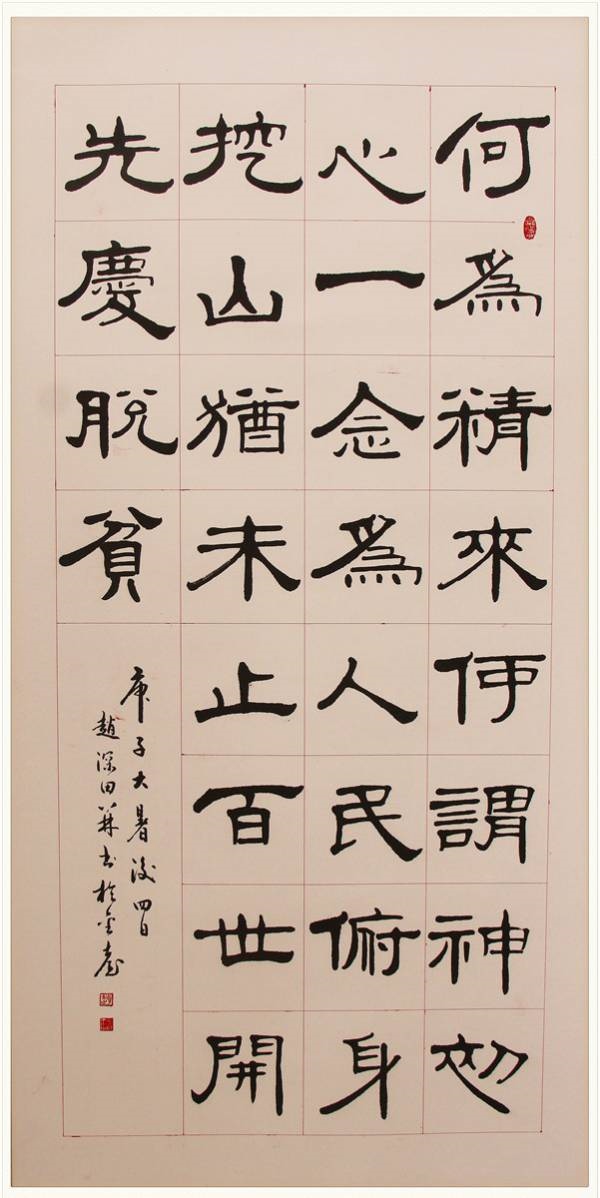 何為精來何謂神初
心一念為人民俯身
挖山猶未止百世開
先慶脫貧
庚子大暑後四日
趙深田並書於金臺